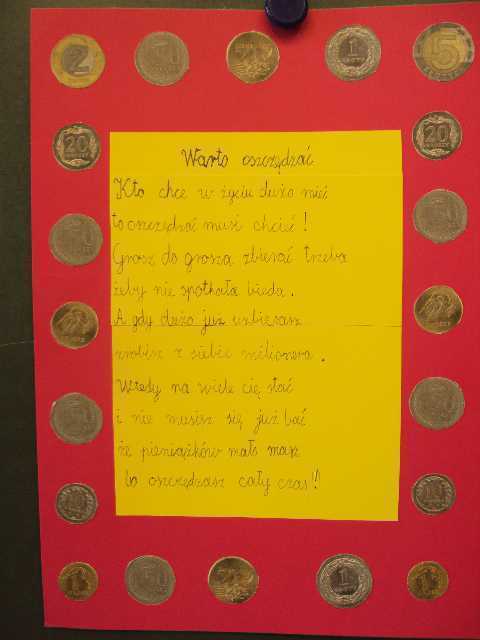 2
50
1
ZŁOTY
5
20
20
50
50
50
50
10
10
1
50
2
1
ZŁOTY
1
Warto oszczędzać
Kto chce w życiu dużo mieć
to oszczędzać musi chcieć!
Grosz do grosza zbierać trzeba
żeby nie spotkała bieda.
A gdy dużo już uzbierasz
zrobisz z siebie milionera.
Wtedy na wiele cię stać
i nie musisz się już bać
że pieniążków mało masz
bo oszczędzasz cały czas!!